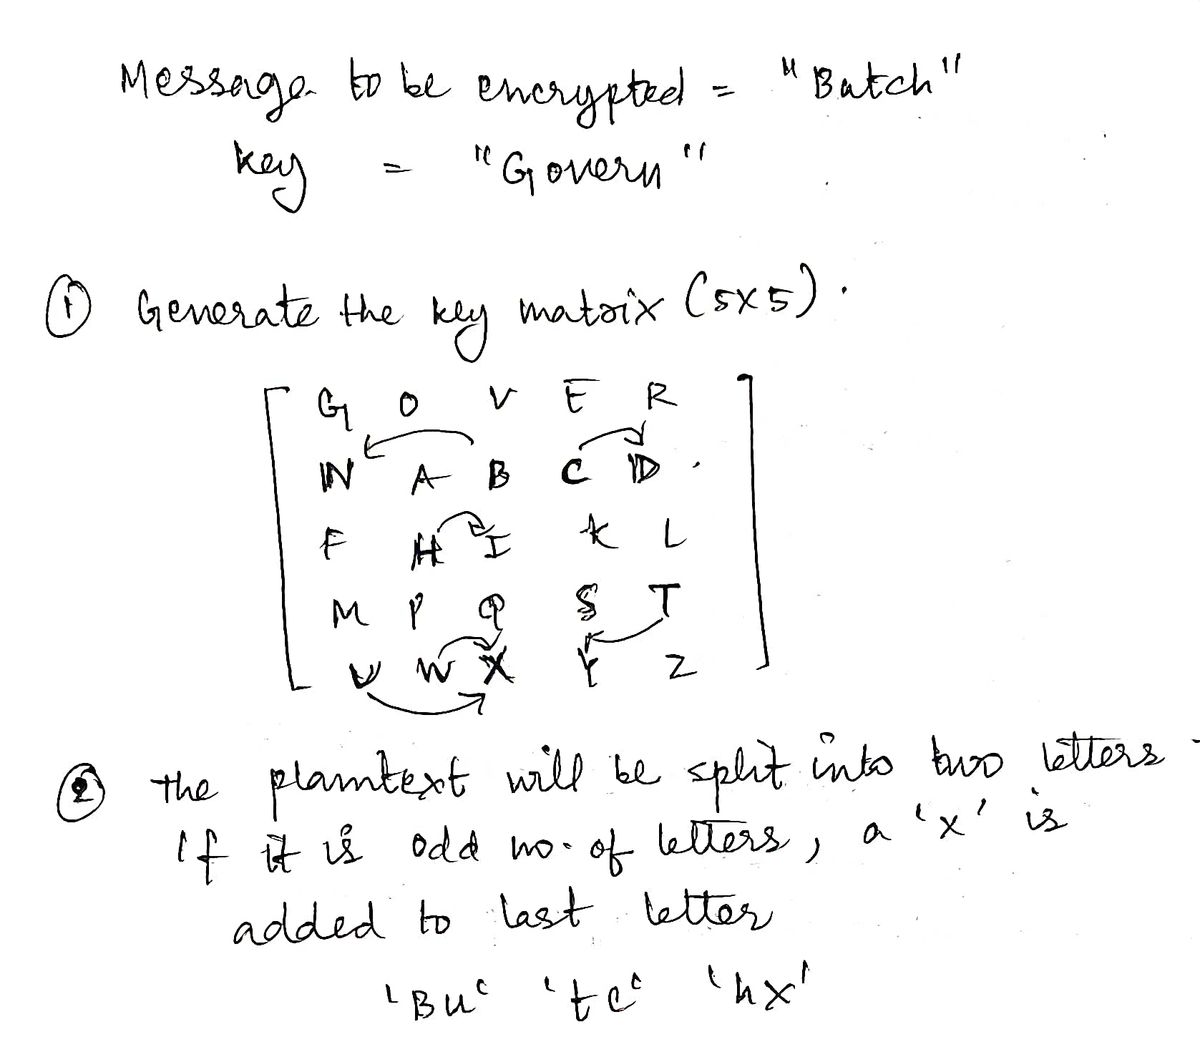 Message to be encrypted = "Butch"
key = "Govern"
① Generate the key matrix (5x5).
G O V E R
N A B C D
F H I K L
M P Q S T
U W X Y Z
② the plaintext will be split into two letters.
If it is odd no. of letters, a 'x' is
added to last letter
'Bu' 'tc' 'hx'